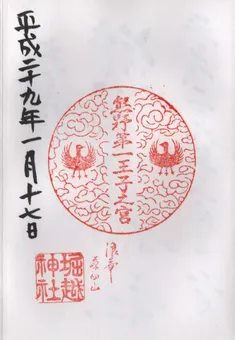 平成二十九年一月十七日
熊野第一王子之宮
浪華
堀越
神社